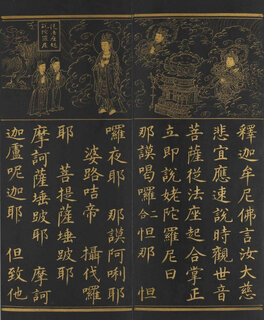 釋迦牟尼佛言汝大慈
悲宜應速說時觀世音
菩薩從法座起合掌正
立即說姥陀羅尼曰
那謨喝囉二合怛那　怛
囉夜耶　那謨阿唎耶
婆路咭帝　攝伐囉
耶　菩提薩埵跛耶
摩訶薩埵跛耶　摩訶
迦盧呢迦耶　但致他